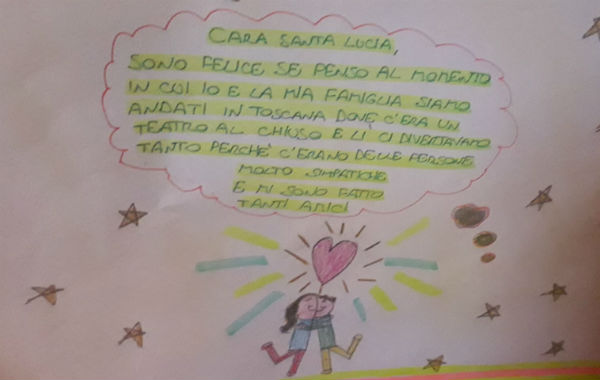 CARA SANTA LUCIA,
SONO FELICE SE PENSO AL MOMENTO
IN CUI IO E LA MIA FAMIGLIA SIAMO
ANDATI IN TOSCANA DOVE C'ERA UN
TEATRO AL CHIUSO E LÌ CI DIVERTAVAMO
TANTO PERCHÈ C'ERANO DELLE PERSONE
MOLTO SIMPATICHE
E MI SONO FATTO
TANTI AMICI